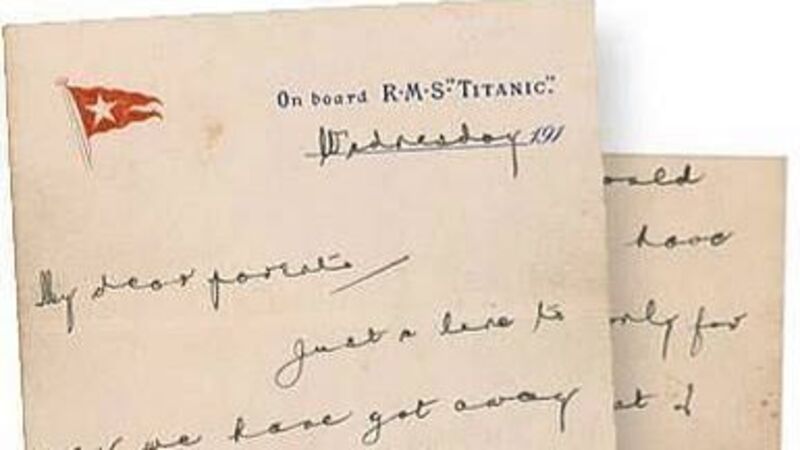 On board R·M·S "TITANIC".
Wednesday 191
My dear parents
Just a line to
we have got away
ould
have
only for
at I